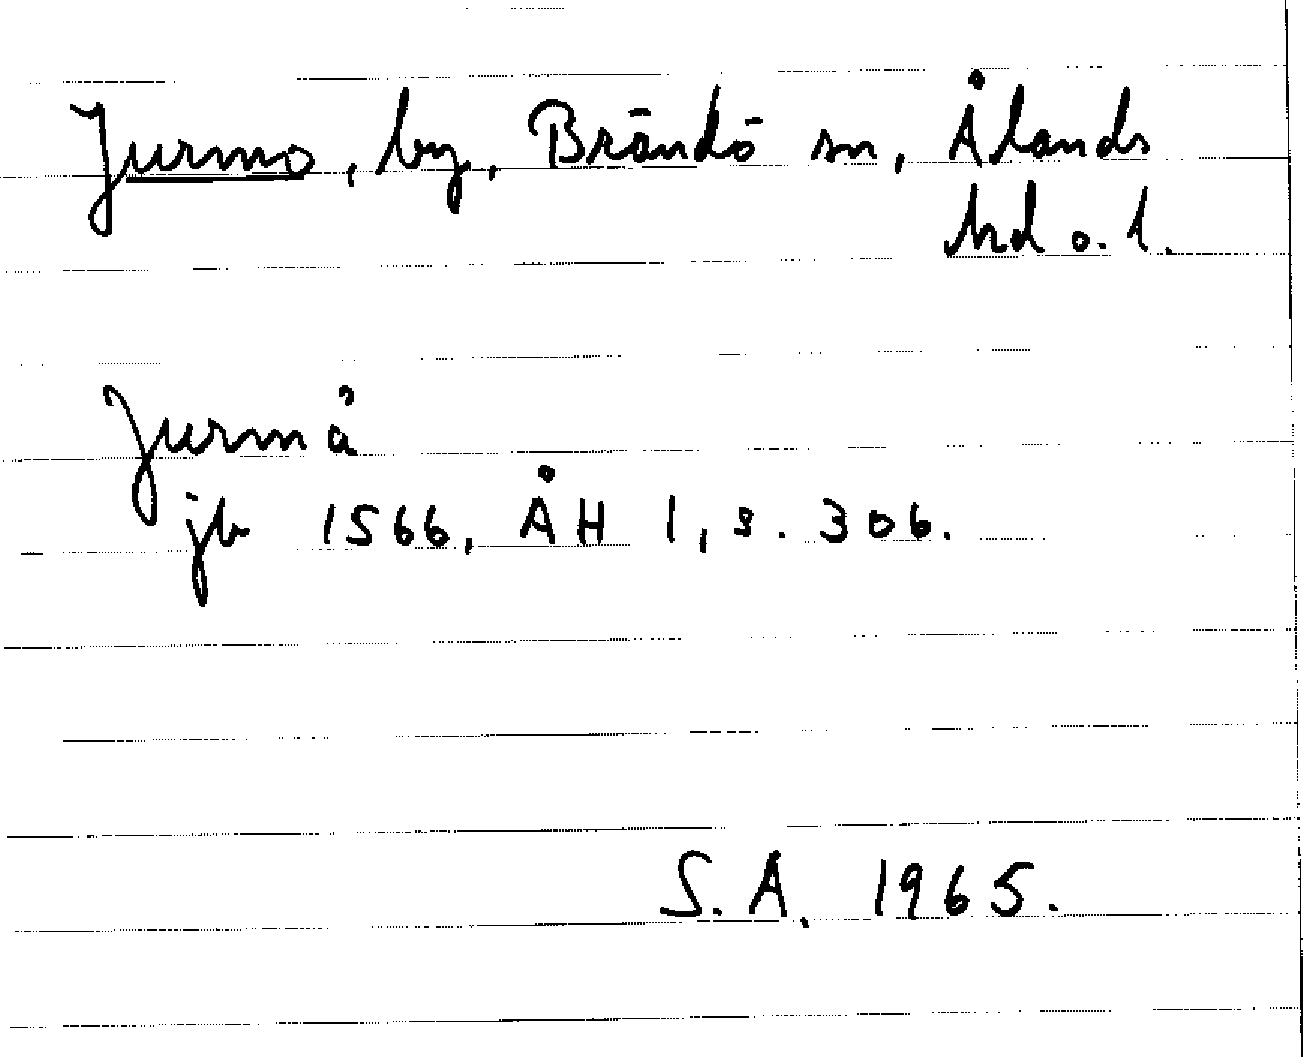 Jurmo, by, Brändö sn, Ålands
hd o. l.
Jurmå
jb 1566, ÅH 1, s. 306.
S.A. 1965.